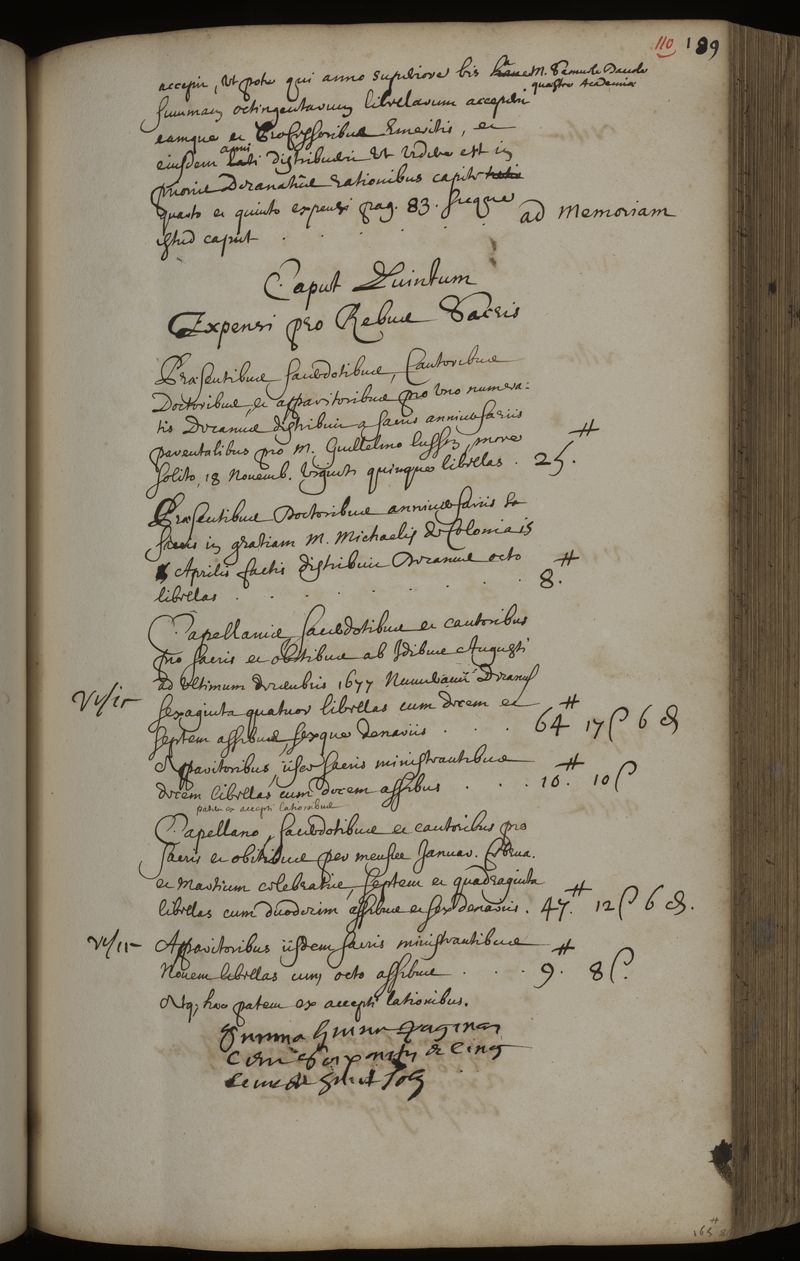 110 189
accepit, ut pote qui anno superiore bis M. Samuele Dacole
quæstore Academiæ
summam octingentarum librarum acceperit
eamque et Professoribus Emeritis, et
eiusdem anni distribuerit ut videre est in
prioris Decanatus rationibus capite
quarto et quinto expensi pag. 83. sicque
istud caput . . . . . ad Memoriam
Caput Quintum
Expensi pro Rebus Sacris
Præsentibus sacerdotibus, Cantoribus
Doctoribus, et apparitoribus pro uno numera-
tis Decanus distribuit sacris anniversariis
parentalibus pro M. Guillelmo more
solito, 18 Novemb. viginti quinque libellas . 25. ᵗᵗ
Præsentibus Doctoribus anniversariis sa
cris in gratiam M. Michaelis de Colonia 15
Aprilis factis distribuit Decanus octo
libellas . . . . . . . 8. ᵗᵗ
Capellanis, sacerdotibus et cantoribus
pro sacris et obitibus ab Idibus Augusti
ad ultimum decembris 1677 Numeravit Decanus
sexaginta quatuor libellas cum decem et
septem assibus, sexque denariis . . . 64 ᵗᵗ 17 ʃ 6 d
Apparitoribus iisdem sacris ministrantibus
decem libellas cum decem assibus . . . 10. ᵗᵗ 10 ʃ
patet ex accepti lationibus
Capellano, sacerdotibus et cantoribus pro
sacris et obitibus per menses Januar. Februa.
et Martium celebratis, septem et quadraginta
libellas cum duodecim assibus et sex denariis . 47. ᵗᵗ 12 ʃ 6 d.
Apparitoribus iisdem sacris ministrantibus
Novem libellas cum octo assibus . . . 9. ᵗᵗ 8 ʃ.
Atq; hæc patent ex accepti lationibus.
Summa huius paginæ
Cent soixante et cinq
huit sols
165 ᵗᵗ 8